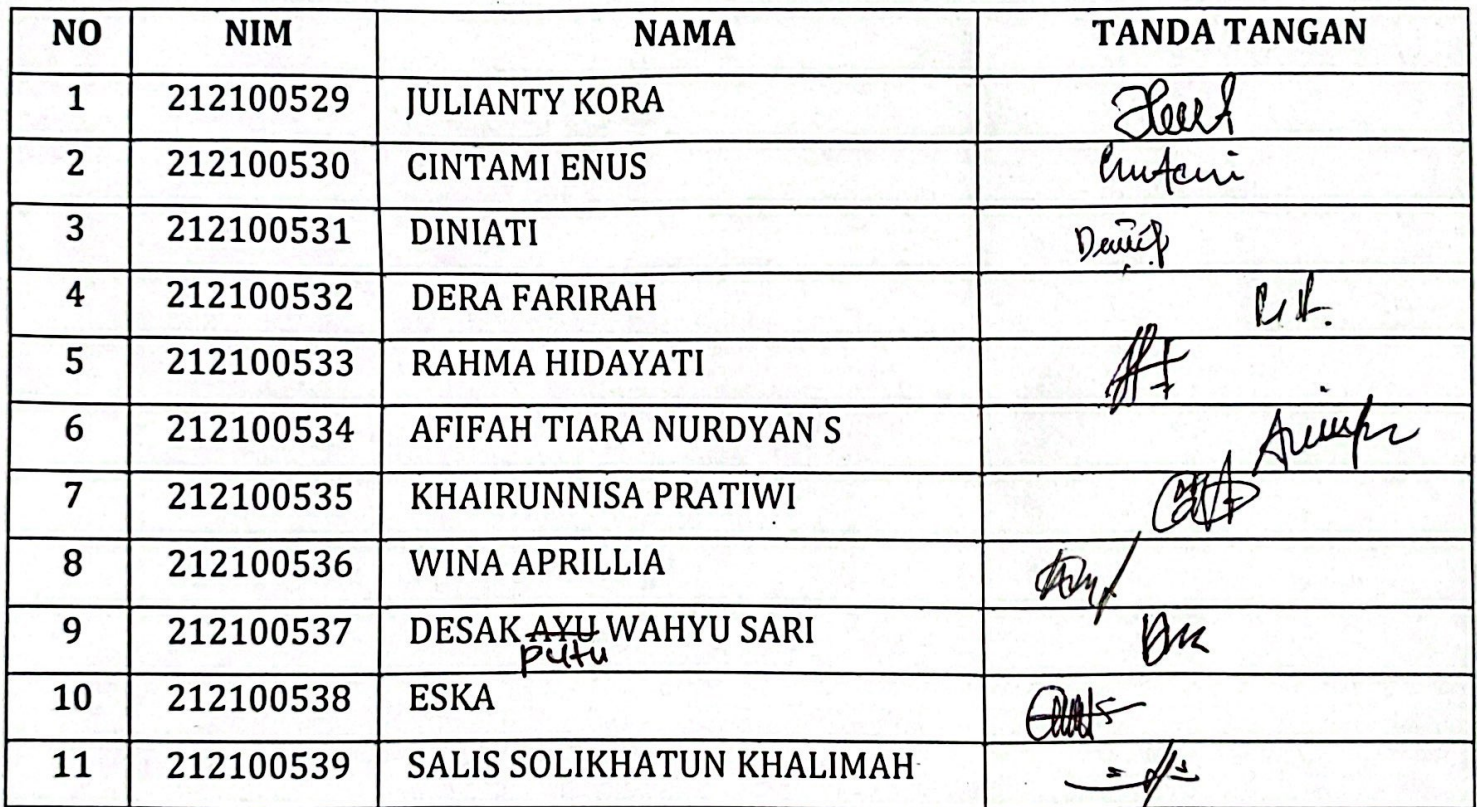 NO NIM NAMA TANDA TANGAN
1 212100529 JULIANTY KORA
2 212100530 CINTAMI ENUS
3 212100531 DINIATI
4 212100532 DERA FARIRAH
5 212100533 RAHMA HIDAYATI
6 212100534 AFIFAH TIARA NURDYAN S
7 212100535 KHAIRUNNISA PRATIWI
8 212100536 WINA APRILLIA
9 212100537 DESAK AYU WAHYU SARI
putu
10 212100538 ESKA
11 212100539 SALIS SOLIKHATUN KHALIMAH